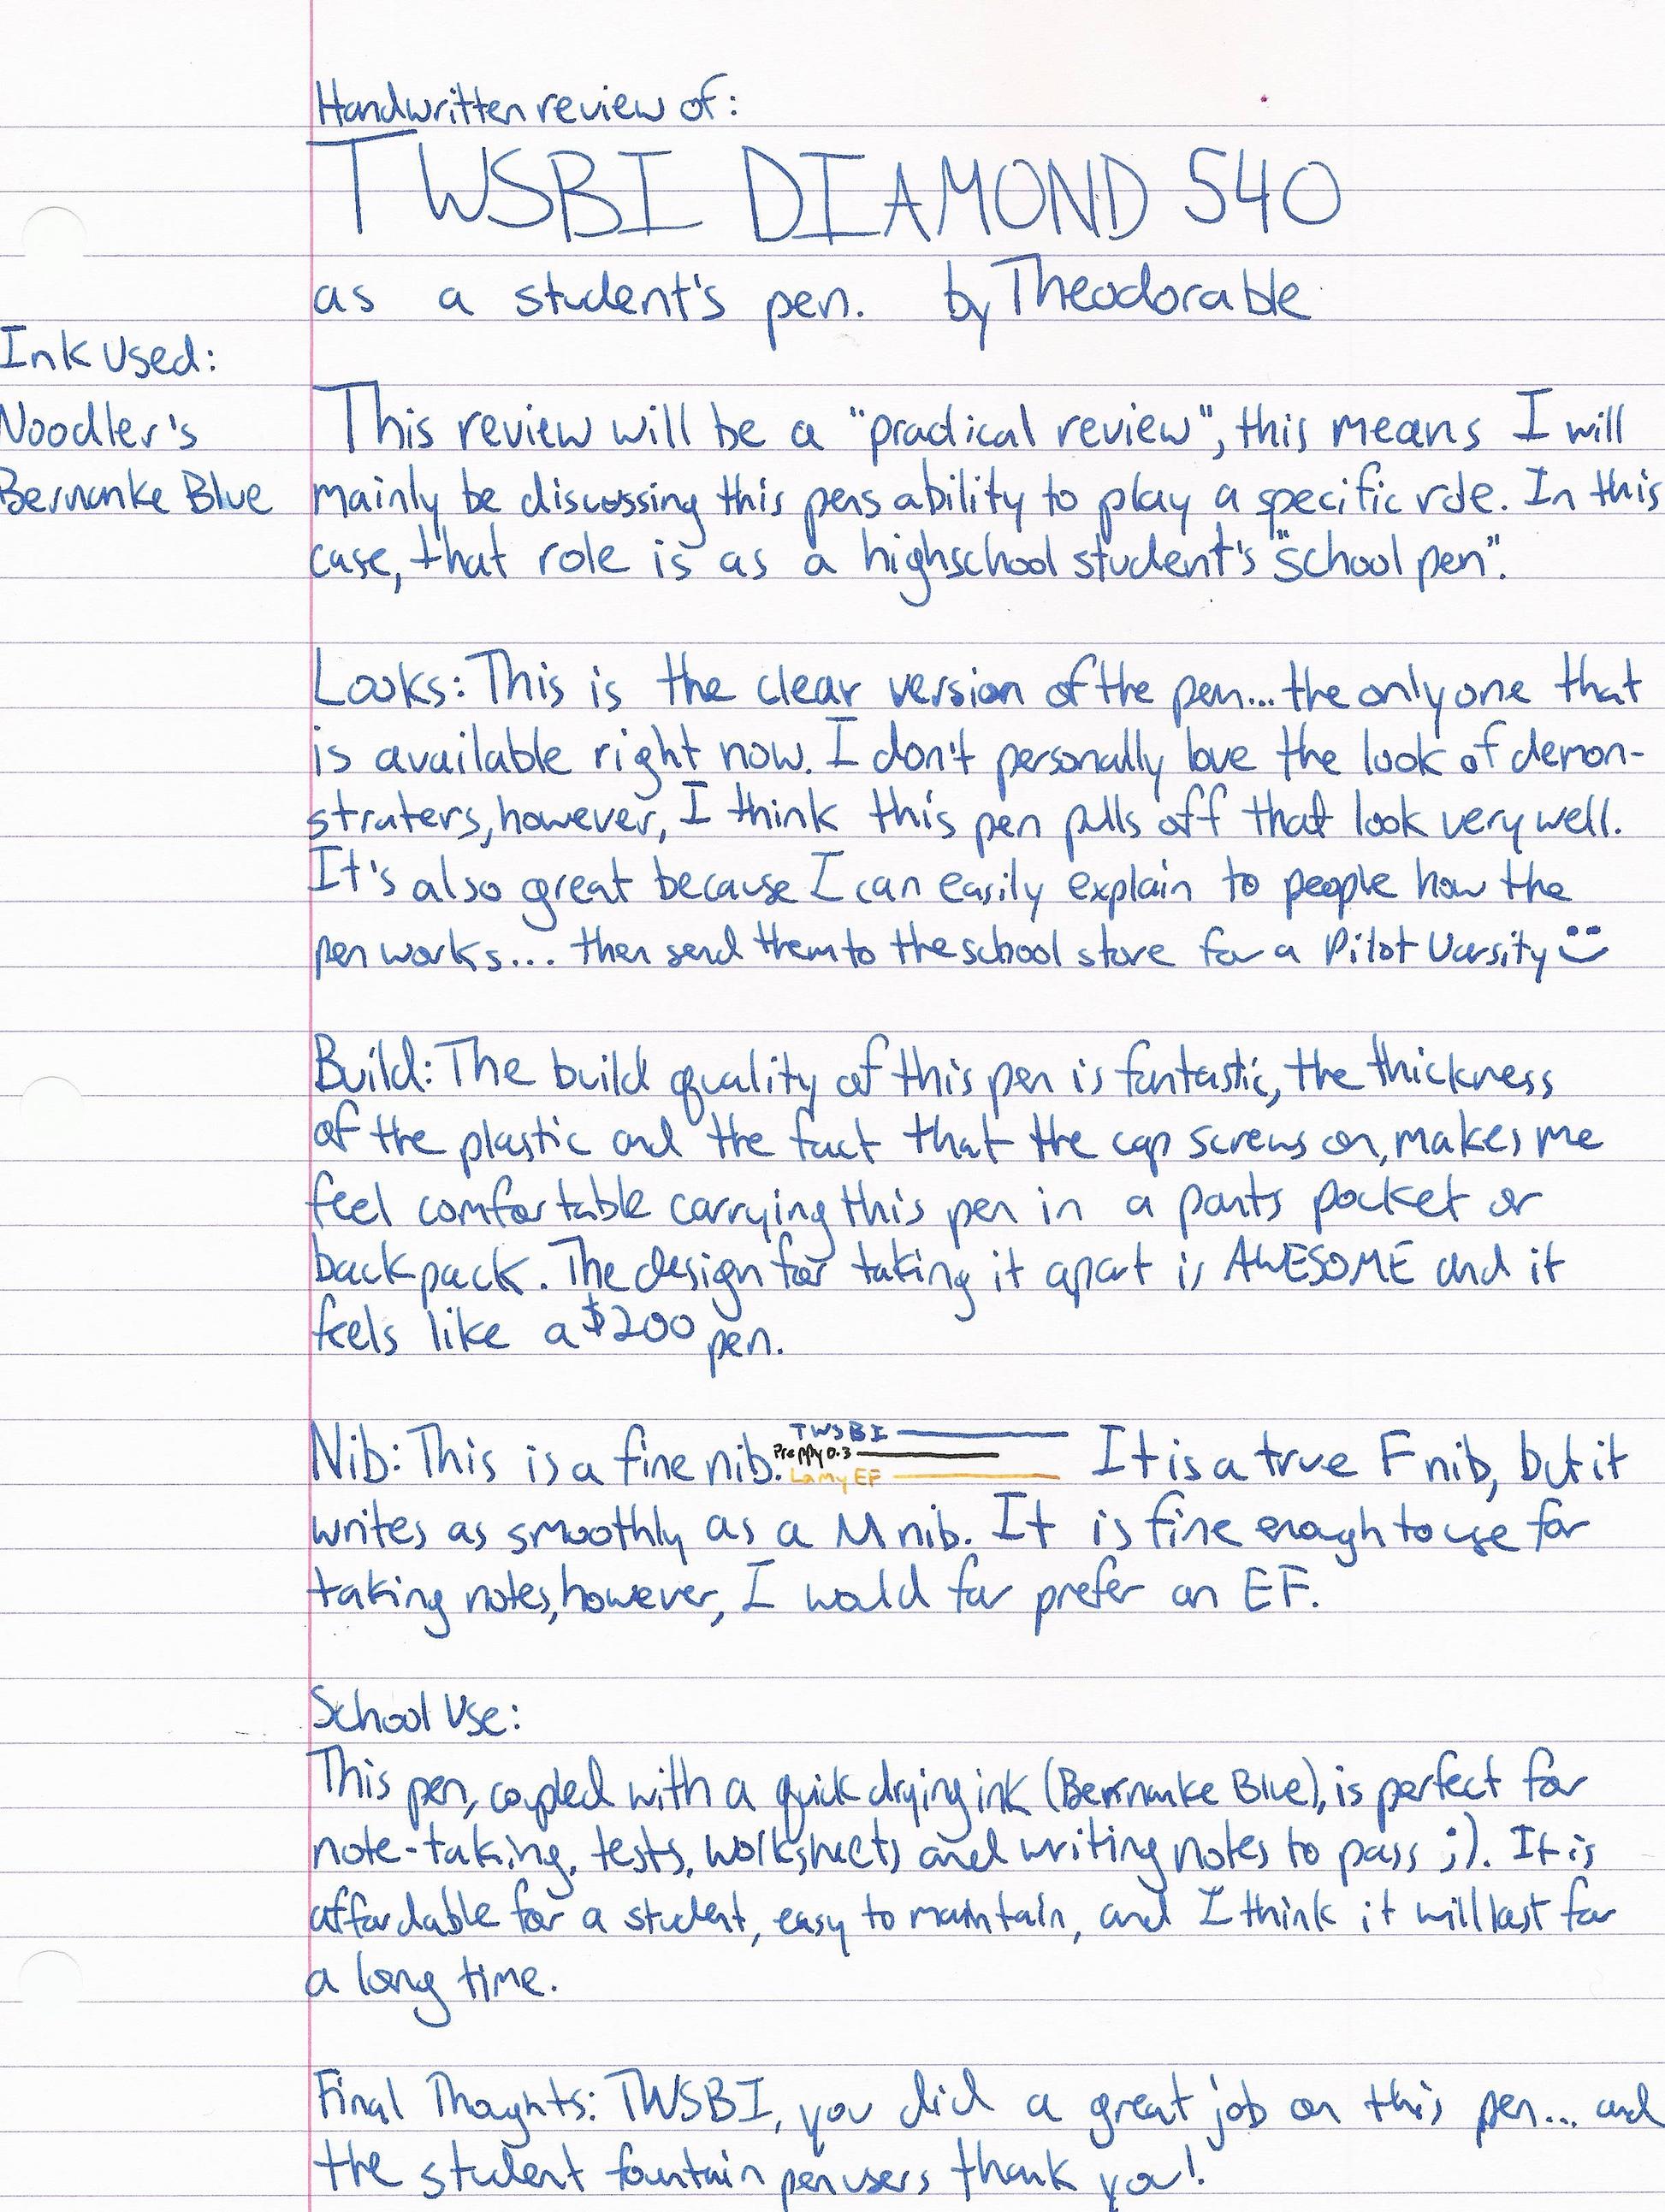 Handwritten review of:
TWSBI DIAMOND 540
as a student's pen. by Theodorable
Ink Used:
Noodler's
Bernanke Blue
This review will be a "practical review", this means I will
mainly be discussing this pens ability to play a specific role. In this
case, that role is as a highschool student's "school pen".
Looks: This is the clear version of the pen... the only one that
is available right now. I don't personally love the look of demon-
straters, however, I think this pen pulls off that look very well.
It's also great because I can easily explain to people how the
pen works... then send them to the school store for a Pilot Varsity
Build: The build quality of this pen is fantastic, the thickness
of the plastic and the fact that the cap screws on, makes me
feel comfortable carrying this pen in a pants pocket or
backpack. The design for taking it apart is AWESOME and it
feels like a $200 pen.
Nib: This is a fine nib. It is a true F nib, but it
TWSBI
Preppy 0.3
Lamy EF
writes as smoothly as a M nib. It is fine enough to use for
taking notes, however, I would far prefer an EF.
School Use:
This pen, coupled with a quick drying ink (Bernanke Blue), is perfect for
note-taking, tests, worksheets and writing notes to pass ;). It is
affordable for a student, easy to maintain, and I think it will last for
a long time.
Final Thoughts: TWSBI, you did a great job on this pen... and
the student fountain pen users thank you!